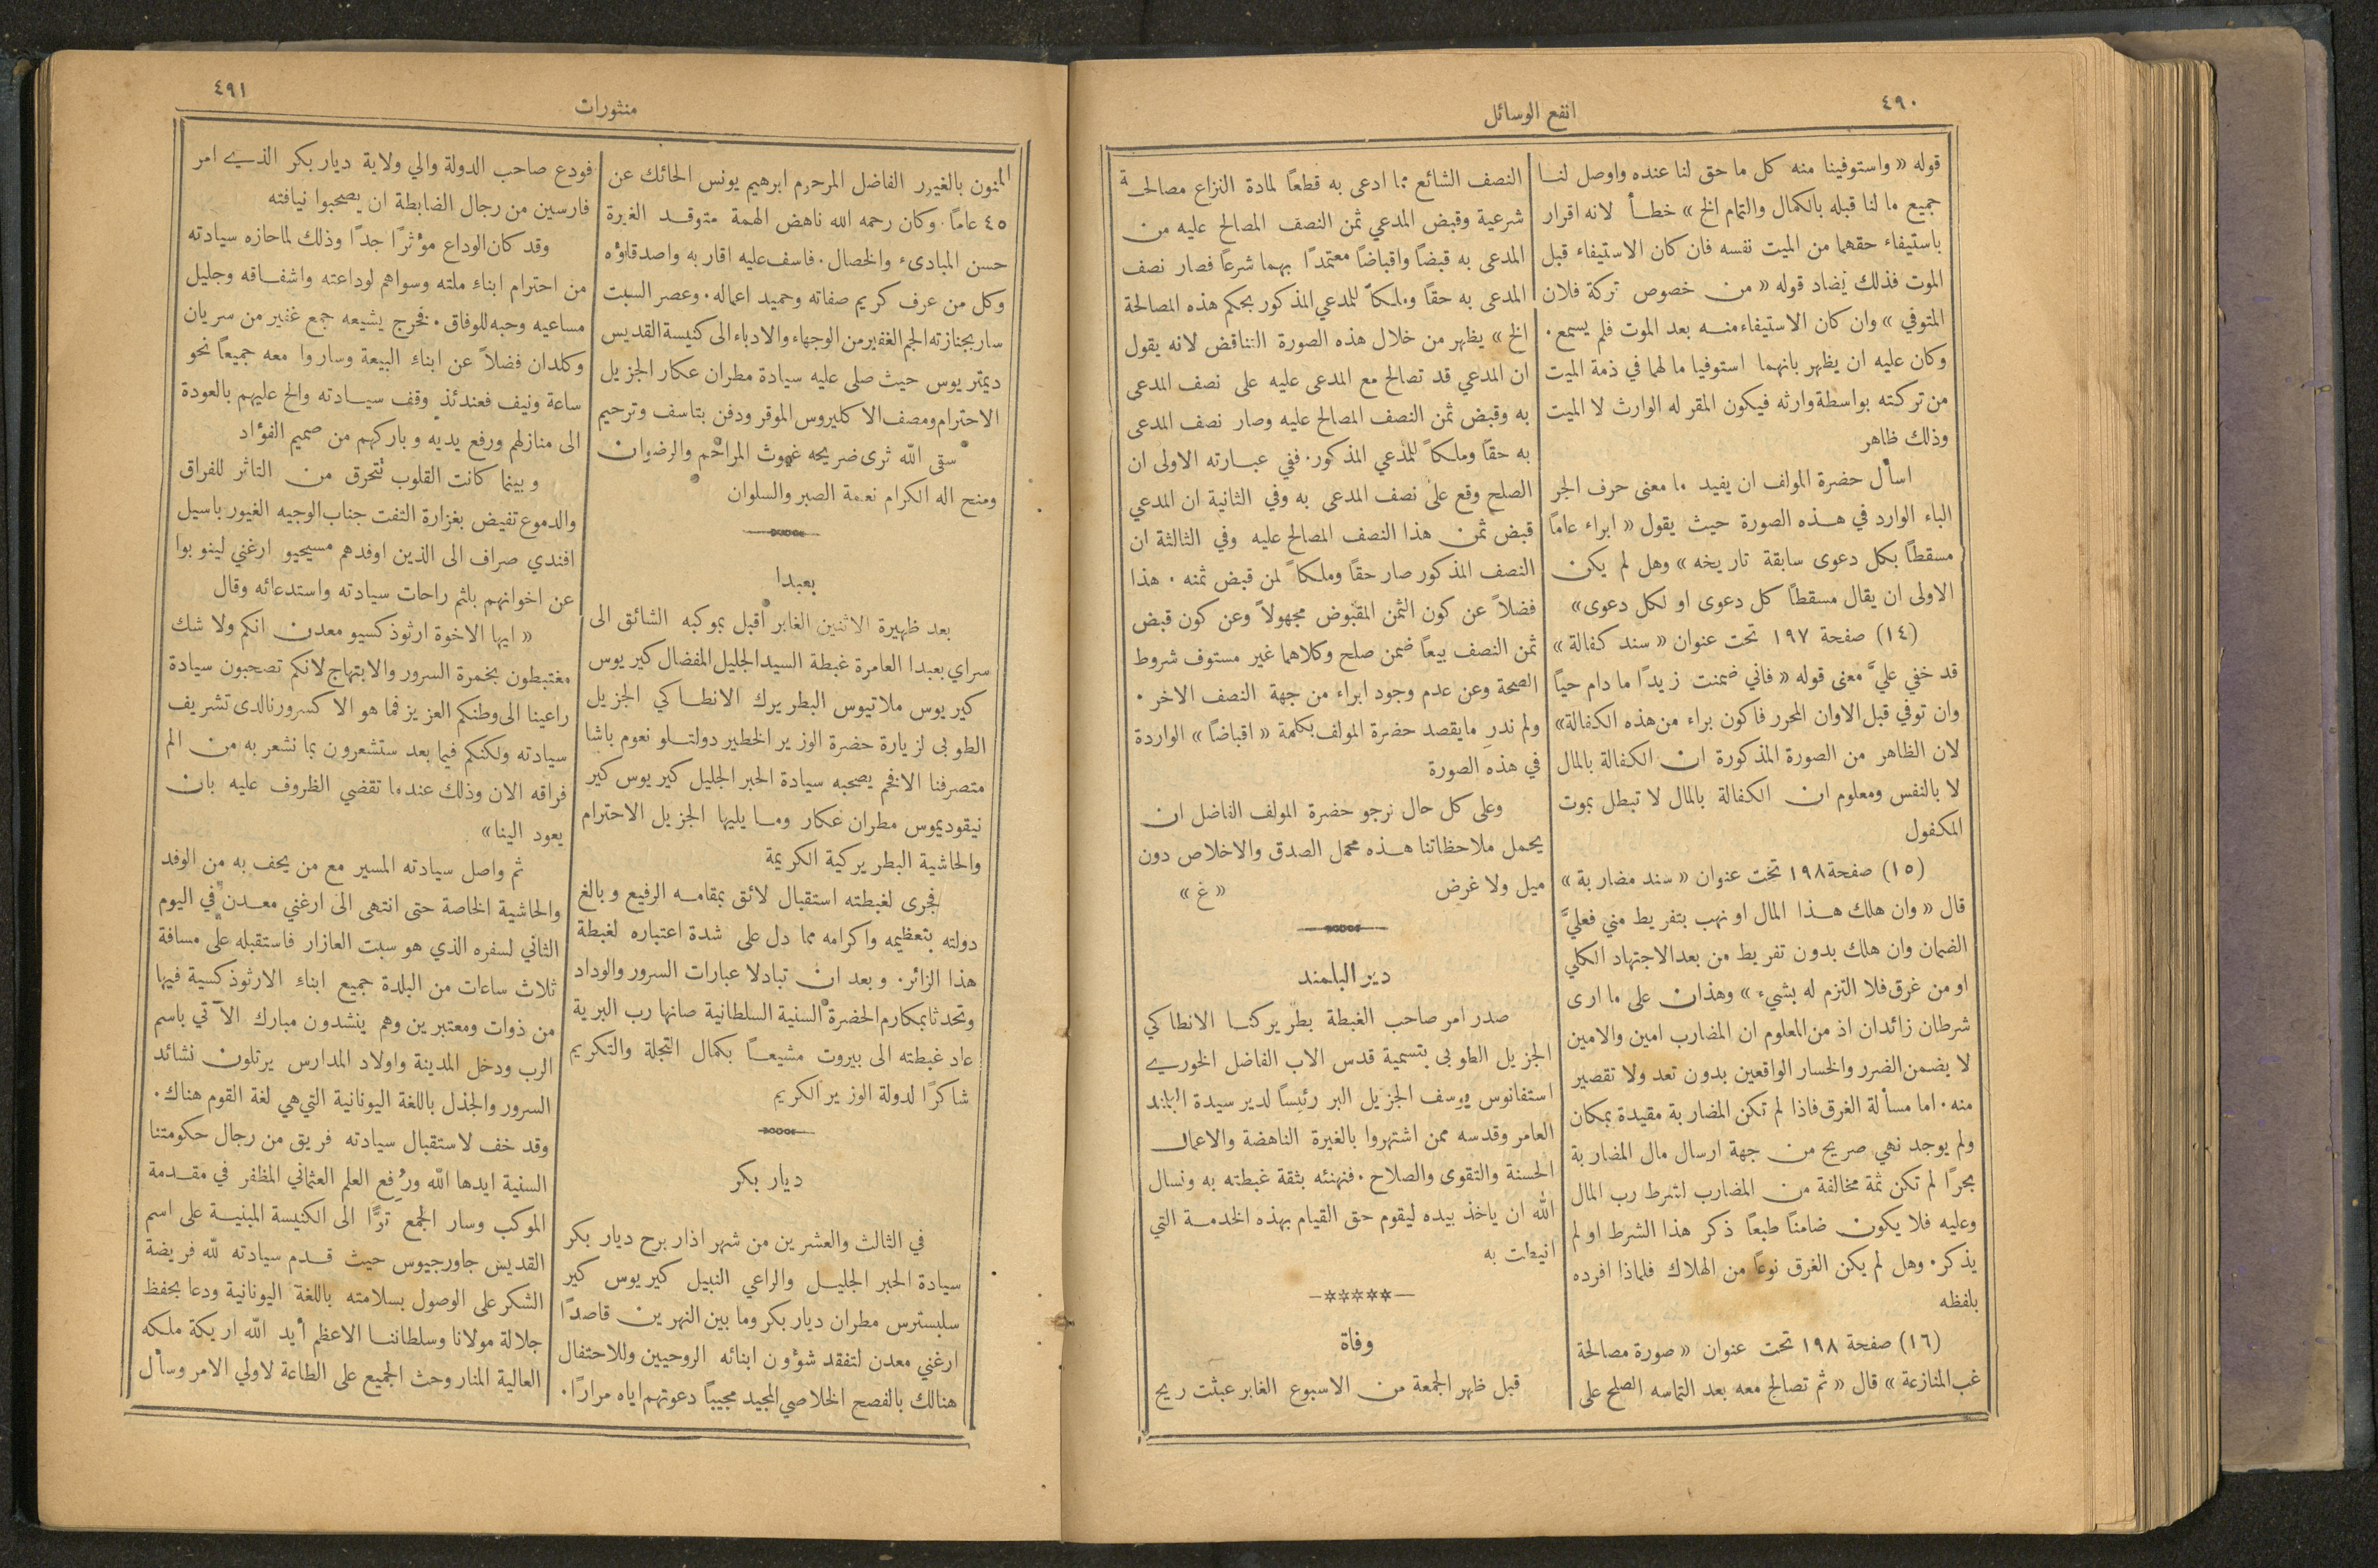 ٤٩٠
انفع الوسائل
قوله « واستوفينا منه كل ما حق لنا عنده واوصل لنا
جميع ما لنا قبله بالكمال والتمام الخ » خطأ لانه اقرار
باستيفاء حقهما من الميت نفسه فان كان الاستيفاء قبل
الموت فذلك يضاد قوله « من خصوص تركة فلان
المتوفي » وان كان الاستيفاء منه بعد الموت فلم يسمع ·
وكان عليه ان يظهر بانهما استوفيا ما لهما في ذمة الميت
من تركته بواسطة وارثه فيكون المقر له الوارث لا الميت
وذلك ظاهر
اسأل حضرة المولف ان يفيد ما معنى حرف الجر
الباء الوارد في هذه الصورة حيث يقول « ابراء عاماً
مسقطاً بكل دعوى سابقة تاريخه » وهل لم يكن
الاولى ان يقال مسقطاً كل دعوى او لكل دعوى»
(١٤) صفحة ١٩٧ تحت عنوان « سند كفالة »
قد خفي عليَّ معنى قوله « فاني ضمنت زيدًا ما دام حياً
وان توفي قبل الاوان المحرر فاكون براء من هذه الكفالة»
لان الظاهر من الصورة المذكورة ان الكفالة بالمال
لا بالنفس ومعلوم ان الكفالة بالمال لا تبطل بموت
المكفول
(١٥) صفحة ١٩٨ تحت عنوان « سند مضاربة »
قال « وان هلك هذا المال او نهب بتفريط مني فعليَّ
الضمان وان هلك بدون تفريط من بعد الاجتهاد الكلي
او من غرق فلا التزم له بشيء » وهذان على ما ارى
شرطان زائدان اذ من المعلوم ان المضارب امين والامين
لا يضمن الضرر والخسار الواقعين بدون تعد ولا تقصير
منه · اما مسألة الغرق فاذا لم تكن المضاربة مقيدة بمكان
ولم يوجد نهي صريح من جهة ارسال مال المضاربة
بحرًا لم تكن ثمة مخالفة من المضارب لشرط رب المال
وعليه فلا يكون ضامناً طبعاً ذكر هذا الشرط او لم
يذكر · وهل لم يكن الغرق نوعاً من الهلاك فلماذا افرده
بلفظه
(١٦) صفحة ١٩٨ تحت عنوان « صورة مصالحة
غب المنازعة » قال « ثم تصالح معه بعد التماسه الصلح على
النصف الشائع مما ادعى به قطعاً لمادة النزاع مصالحة
شرعية وقبض المدعي ثمن النصف المصالح عليه من
المدعى به قبضاً واقباضاً معتمدًا بهما شرعاً فصار نصف
المدعى به حقاً وملكاً للمدعي المذكور بحكم هذه المصالحة
الخ » يظهر من خلال هذه الصورة التناقض لانه يقول
ان المدعي قد تصالح مع المدعى عليه على نصف المدعى
به وقبض ثمن النصف المصالح عليه وصار نصف المدعى
به حقاً وملكاً للمدعي المذكور · ففي عبارته الاولى ان
الصلح وقع على نصف المدعى به وفي الثانية ان المدعي
قبض ثمن هذا النصف المصالح عليه وفي الثالثة ان
النصف المذكور صار حقاً وملكاً لمن قبض ثمنه · هذا
فضلاً عن كون الثمن المقبوض مجهولاً وعن كون قبض
ثمن النصف بيعاً ضمن صلح وكلاهما غير مستوف شروط
الصحة وعن عدم وجود ابراء من جهة النصف الاخر ·
ولم ندرِ ما يقصد حضرة المولف بكلمة « اقباضاً » الواردة
في هذه الصورة
وعلى كل حال نرجو حضرة المولف الفاضل ان
يحمل ملاحظاتنا هذه محمل الصدق والاخلاص دون
ميل ولا غرض « غ »
دير البلمند
صدر امر صاحب الغبطة بطريركنا الانطاكي
الجزيل الطوبى بتسمية قدس الاب الفاضل الخوري
استفانوس يوسف الجزيل البر رئيساً لدير سيدة البلمند
العامر وقدسه ممن اشتهروا بالغيرة الناهضة والاعمال
الحسنة والتقوى والصلاح · فنهنئه بثقة غبطته به ونسال
الله ان ياخذ بيده ليقوم حق القيام بهذه الخدمة التي
انيطت به
—*****—
وفاة
قبل ظهر الجمعة من الاسبوع الغابر عبثت ريح
٤٩١
منثورات
المنون بالغيور الفاضل المرحوم ابرهيم يونس الحائك عن
٤٥ عاماً · وكان رحمه الله ناهض الهمة متوقد الغيرة
حسن المبادىء والخصال · فاسف عليه اقاربه واصدقاؤه
وكل من عرف كريم صفاته وحميد اعماله · وعصر السبت
سار بجنازته الجم الغفير من الوجهاء والادباء الى كنيسة القديس
ديمتريوس حيث صلى عليه سيادة مطران عكار الجزيل
الاحترام ومصف الاكليروس الموقر ودفن بتاسف وترحيم
سقى الله ثرى ضريحه غيوث المراحم والرضوان
ومنح اله الكرام نعمة الصبر والسلوان
بعبدا
بعد ظهيرة الاثنين الغابر اقبل بموكبه الشائق الى
سراي بعبدا العامرة غبطة السيد الجليل المفضال كيريوس
كيريوس ملاتيوس البطريرك الانطاكي الجزيل
الطوبى لزيارة حضرة الوزير الخطير دولتلو نعوم باشا
متصرفنا الافخم يصحبه سيادة الحبر الجليل كيريوس كير
نيقوديموس مطران عكار وما يليها الجزيل الاحترام
والحاشية البطريركية الكريمة
فجرى لغبطته استقبال لائق بمقامه الرفيع وبالغ
دولته بتعظيمه واكرامه مما دل على شدة اعتباره لغبطة
هذا الزائر · وبعد ان تبادلا عبارات السرور والوداد
وتحدثا بمكارم الحضرة السنية السلطانية صانها رب البرية
عاد غبطته الى بيروت مشيعاً بكمال التجلة والتكريم
شاكرًا لدولة الوزير الكريم
ديار بكر
في الثالث والعشرين من شهر اذار برح ديار بكر
سيادة الحبر الجليل والراعي النبيل كيريوس كير
سلبسترس مطران ديار بكر وما بين النهرين قاصدًا
ارغني معدن لتفقد شؤون ابنائه الروحيين وللاحتفال
هنالك بالفصح الخلاصي المجيد مجيباً دعوتهم اياه مرارًا ·
فودع صاحب الدولة والي ولاية ديار بكر الذي امر
فارسين من رجال الضابطة ان يصحبوا نيافته
وقد كان الوداع مؤثرًا جدًا وذلك لما حازه سيادته
من احترام ابناء ملته وسواهم لوداعته واشفاقه وجليل
مساعيه وحبه للوفاق · فخرج يشيعه جمع غفير من سريان
وكلدان فضلاً عن ابناء البيعة وساروا معه جميعاً نحو
ساعة ونيف فعندئذٍ وقف سيادته والح عليهم بالعودة
الى منازلهم ورفع يديه وباركهم من صميم الفؤاد
وبينما كانت القلوب تتحرق من التاثر للفراق
والدموع تفيض بغزارة التفت جناب الوجيه الغيور باسيل
افندي صراف الى الذين اوفدهم مسيحيو ارغني لينوبوا
عن اخوانهم بلثم راحات سيادته واستدعائه وقال
« ايها الاخوة ارثوذكسيو معدن انكم ولا شك
مغتبطون بخمرة السرور والابتهاج لانكم تصحبون سيادة
راعينا الى وطنكم العزيز فما هو الا كسرورنا لدى تشريف
سيادته ولكنكم فيما بعد ستشعرون بما نشعر به من الم
فراقه الان وذلك عندما تقضي الظروف عليه بان
يعود الينا»
ثم واصل سيادته المسير مع من يحف به من الوفد
والحاشية الخاصة حتى انتهى الى ارغني معدن في اليوم
الثاني لسفره الذي هو سبت العازار فاستقبله على مسافة
ثلاث ساعات من البلدة جميع ابناء الارثوذكسية فيها
من ذوات ومعتبرين وهم ينشدون مبارك الآتي باسم
الرب ودخل المدينة واولاد المدارس يرتلون نشائد
السرور والجذل باللغة اليونانية التي هي لغة القوم هناك ·
وقد خف لاستقبال سيادته فريق من رجال حكومتنا
السنية ايدها الله ورُفِع العلم العثماني المظفر في مقدمة
الموكب وسار الجمع توًّا الى الكنيسة المبنية على اسم
القديس جاورجيوس حيث قدم سيادته لله فريضة
الشكر على الوصول بسلامته باللغة اليونانية ودعا بحفظ
جلالة مولانا وسلطاننا الاعظم أيد الله اريكة ملكه
العالية المنار وحث الجميع على الطاعة لاولي الامر وسأل